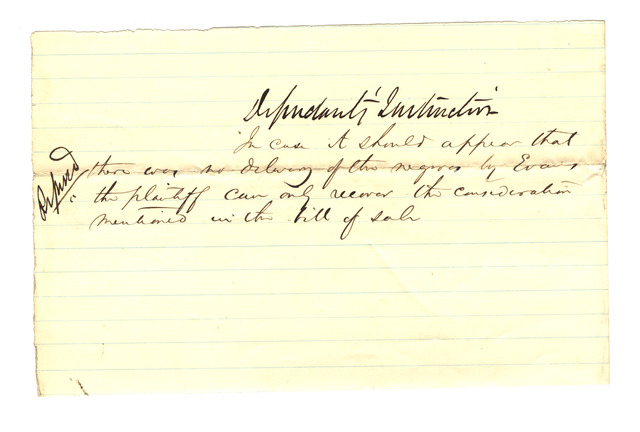 Defendants' Instruction
In case it should appear that
there was no delivery of the negroes by Evans,
the plaintiff can only recover the consideration
mentioned in the bill of sale
Refused